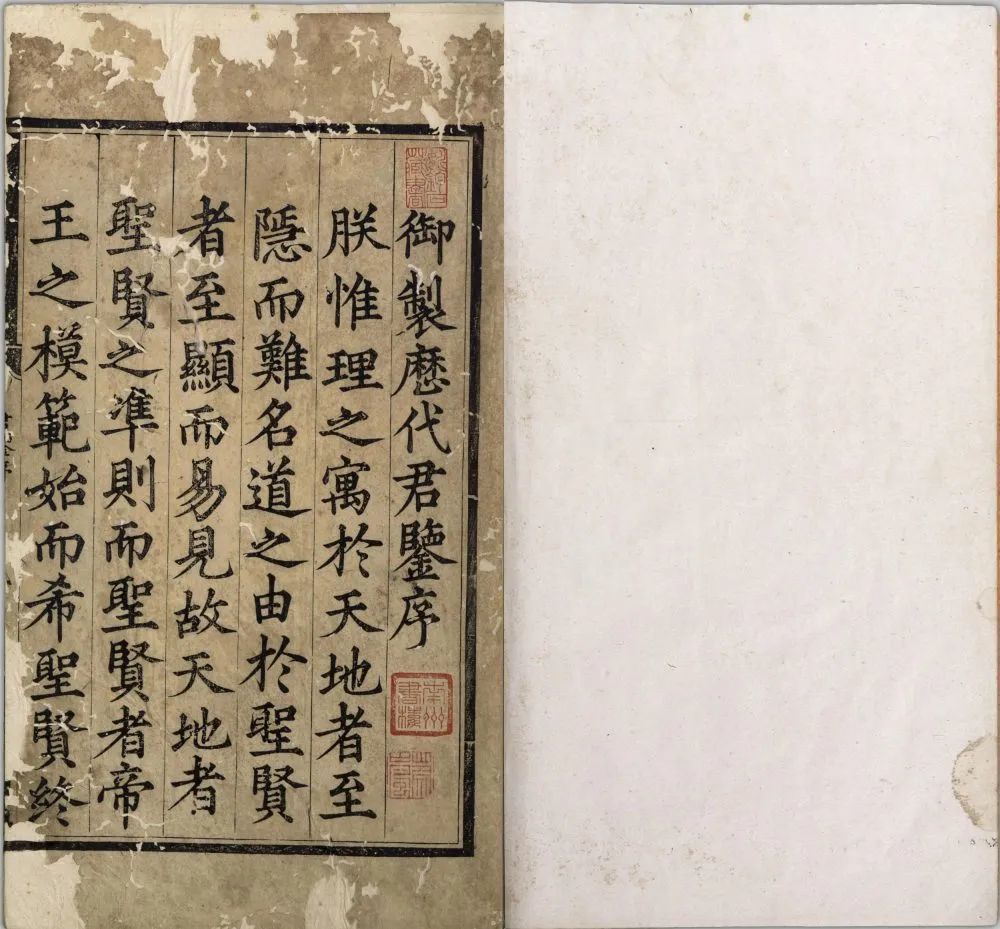 御製歷代君鑒序
朕惟理之寓於天地者至
隱而難名道之由於聖賢
者至顯而易見故天地者
聖賢之準則而聖賢者帝
王之模範始而希聖賢終
南州
書樓